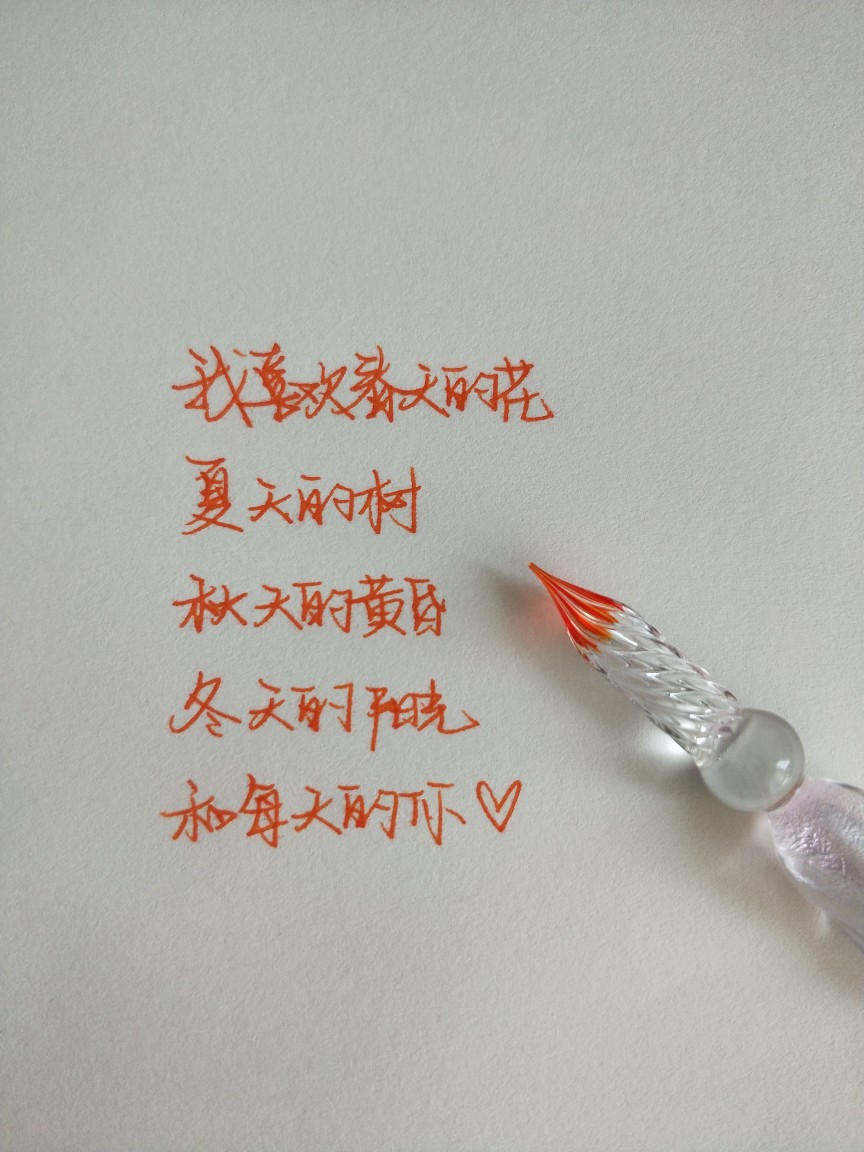 我喜欢春天的花
夏天的树
秋天的黄昏
冬天的阳光
和每天的你♡